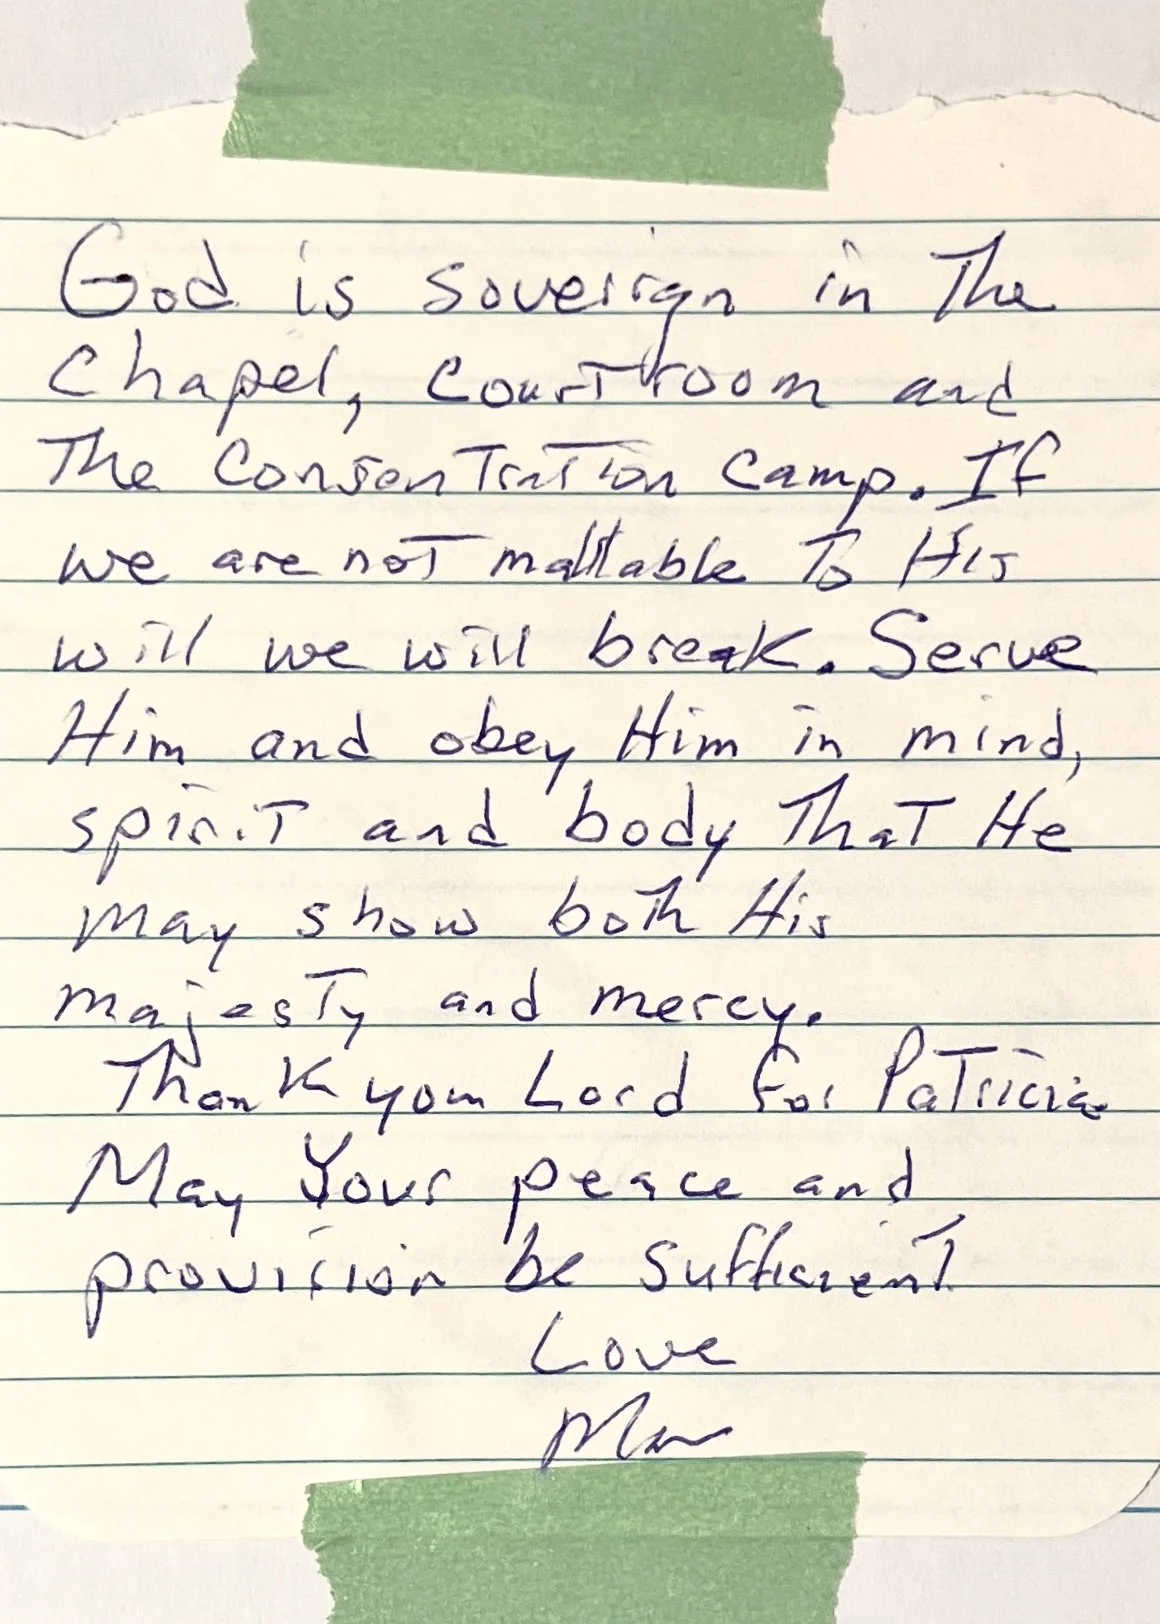 God is soveirign in The
Chapel, CourTroom and
The ConsenTraTion Camp. If
we are noT malltable To His
will we will break. Serve
Him and obey Him in mind,
spiriT and body ThaT He
may show both His
majesTy and mercy.
Thank you Lord for PaTricia
May Your peace and
provision be sufficienT
Love